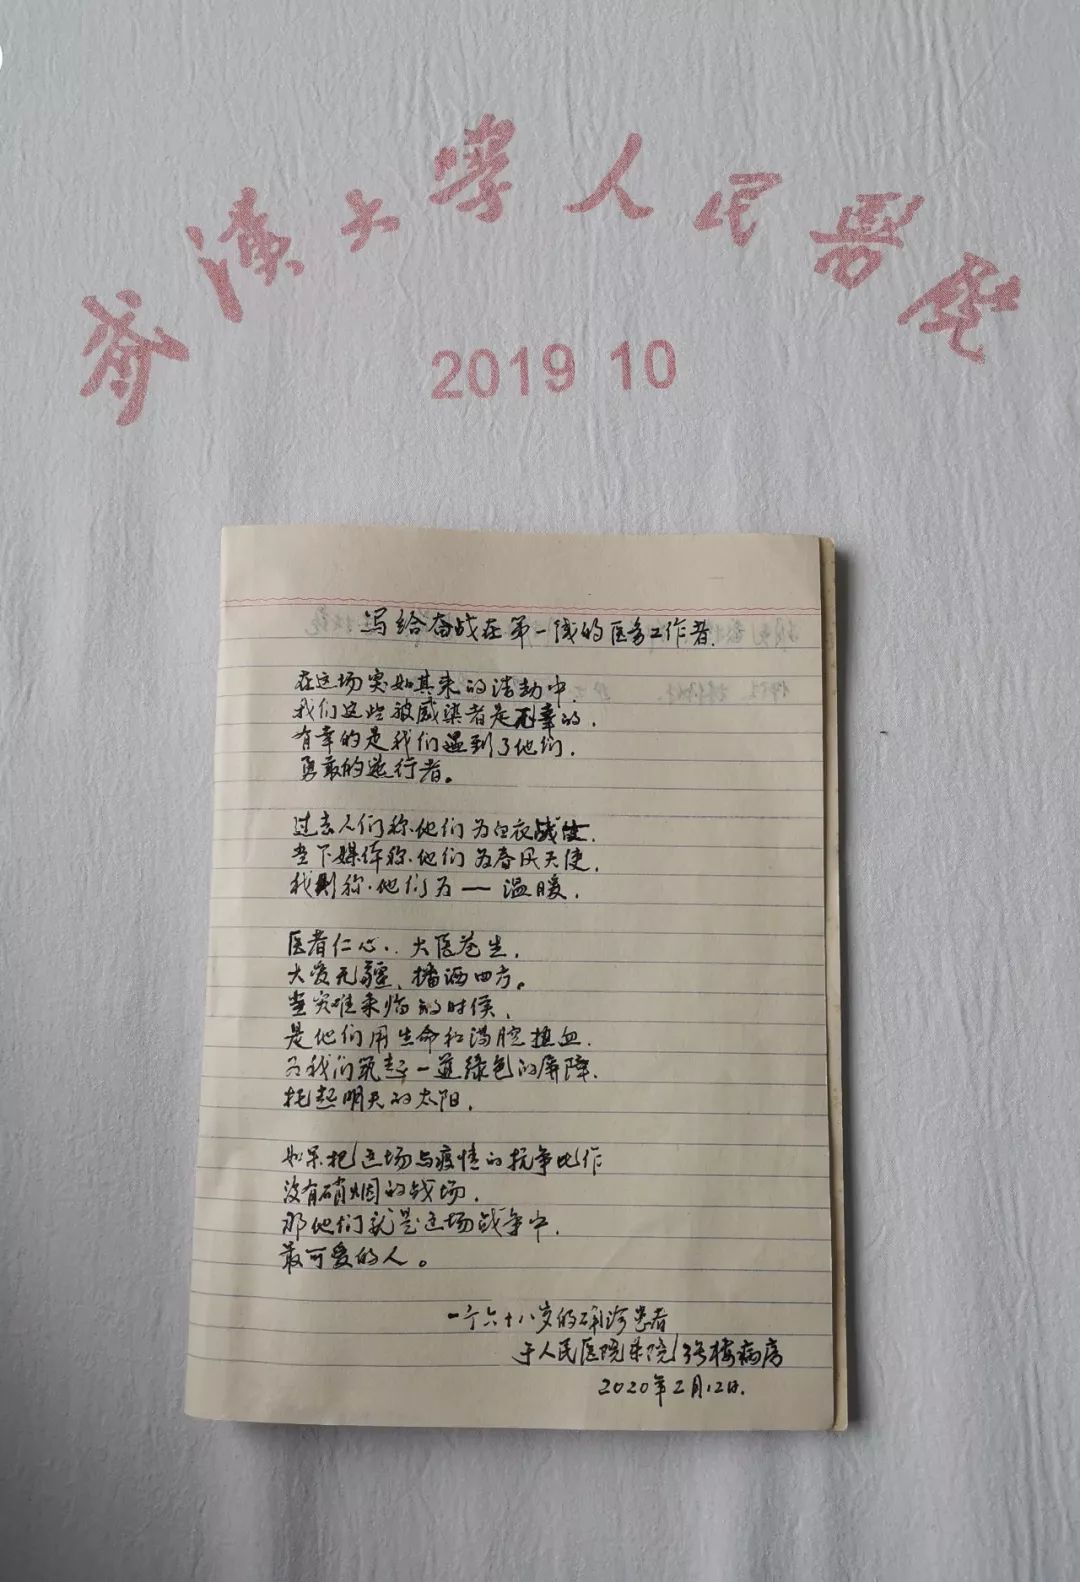 武漢大學人民醫院
2019 10
写给奋战在第一线的医务工作者.
在这场突如其来的浩劫中,
我们这些被感染者是不幸的,
有幸的是我们遇到了他们,
勇敢的逆行者。
过去人们称他们为白衣战士,
当下媒体称他们为春风天使,
我则称他们为——温暖,
医者仁心、大医苍生,
大爱无疆、播洒四方。
当灾难来临的时侯,
是他们用生命和满腔热血,
为我们筑起一道绿色的屏障,
托起明天的太阳,
如果把这场与疫情的抗争比作
没有硝烟的战场,
那他们就是这场战争中,
最可爱的人。
一个六十八岁的确诊患者
于人民医院东院 号楼病房
2020年2月12日.